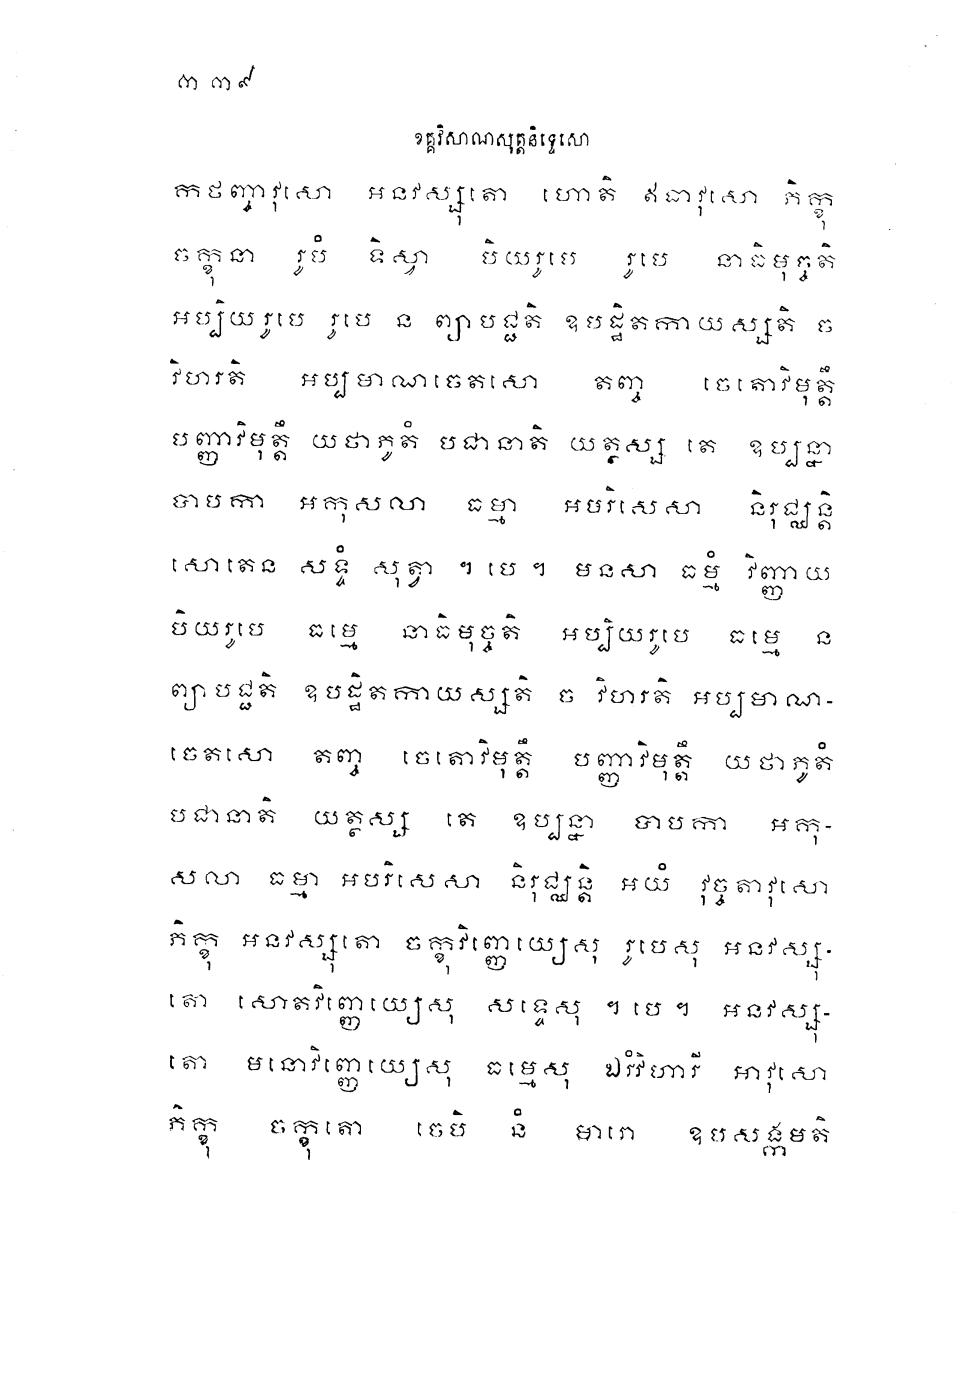 ៣ ៣៩
ខគ្គវិសាណសុត្តនិទ្ទេសោ
កថញ្ចាវុសោ អនវស្សុតោ ហោតិ ឥធាវុសោ ភិក្ខុ
ចក្ខុនា រូបំ ទិស្វា បិយរូបេ រូបេ នាធិមុច្ចតិ
អប្បិយរូបេ រូបេ ន ព្យាបជ្ជតិ ឧបដ្ឋិតកាយស្សតិ ច
វិហរតិ អប្បមាណចេតសោ តញ្ច ចេតោវិមុត្តឹ
បញ្ញាវិមុត្តឹ យថាភូតំ បជានាតិ យត្ថស្ស តេ ឧប្បន្នា
បាបកា អកុសលា ធម្មា អបរិសេសា និរុជ្ឈន្តិ
សោតេន សទ្ទំ សុត្វា ។ បេ ។ មនសា ធម្មំ វិញ្ញាយ
បិយរូបេ ធម្មេ នាធិមុច្ចតិ អប្បិយរូបេ ធម្មេ ន
ព្យាបជ្ជតិ ឧបដ្ឋិតកាយស្សតិ ច វិហរតិ អប្បមាណ-
ចេតសោ តញ្ច ចេតោវិមុត្តឹ បញ្ញាវិមុត្តឹ យថាភូតំ
បជានាតិ យត្ថស្ស តេ ឧប្បន្នា បាបកា អកុ-
សលា ធម្មា អបរិសេសា និរុជ្ឈន្តិ អយំ វុច្ចតាវុសោ
ភិក្ខុ អនវស្សុតោ ចក្ខុវិញ្ញេយ្យេសុ រូបេសុ អនវស្សុ-
តោ សោតវិញ្ញេយ្យេសុ សទ្ទេសុ ។ បេ ។ អនវស្សុ-
តោ មនោវិញ្ញេយ្យេសុ ធម្មេសុ ឯវំវិហារី អាវុសោ
ភិក្ខុ ចក្ខុតោ ចេបិ នំ មារោ ឧបសង្កមតិ